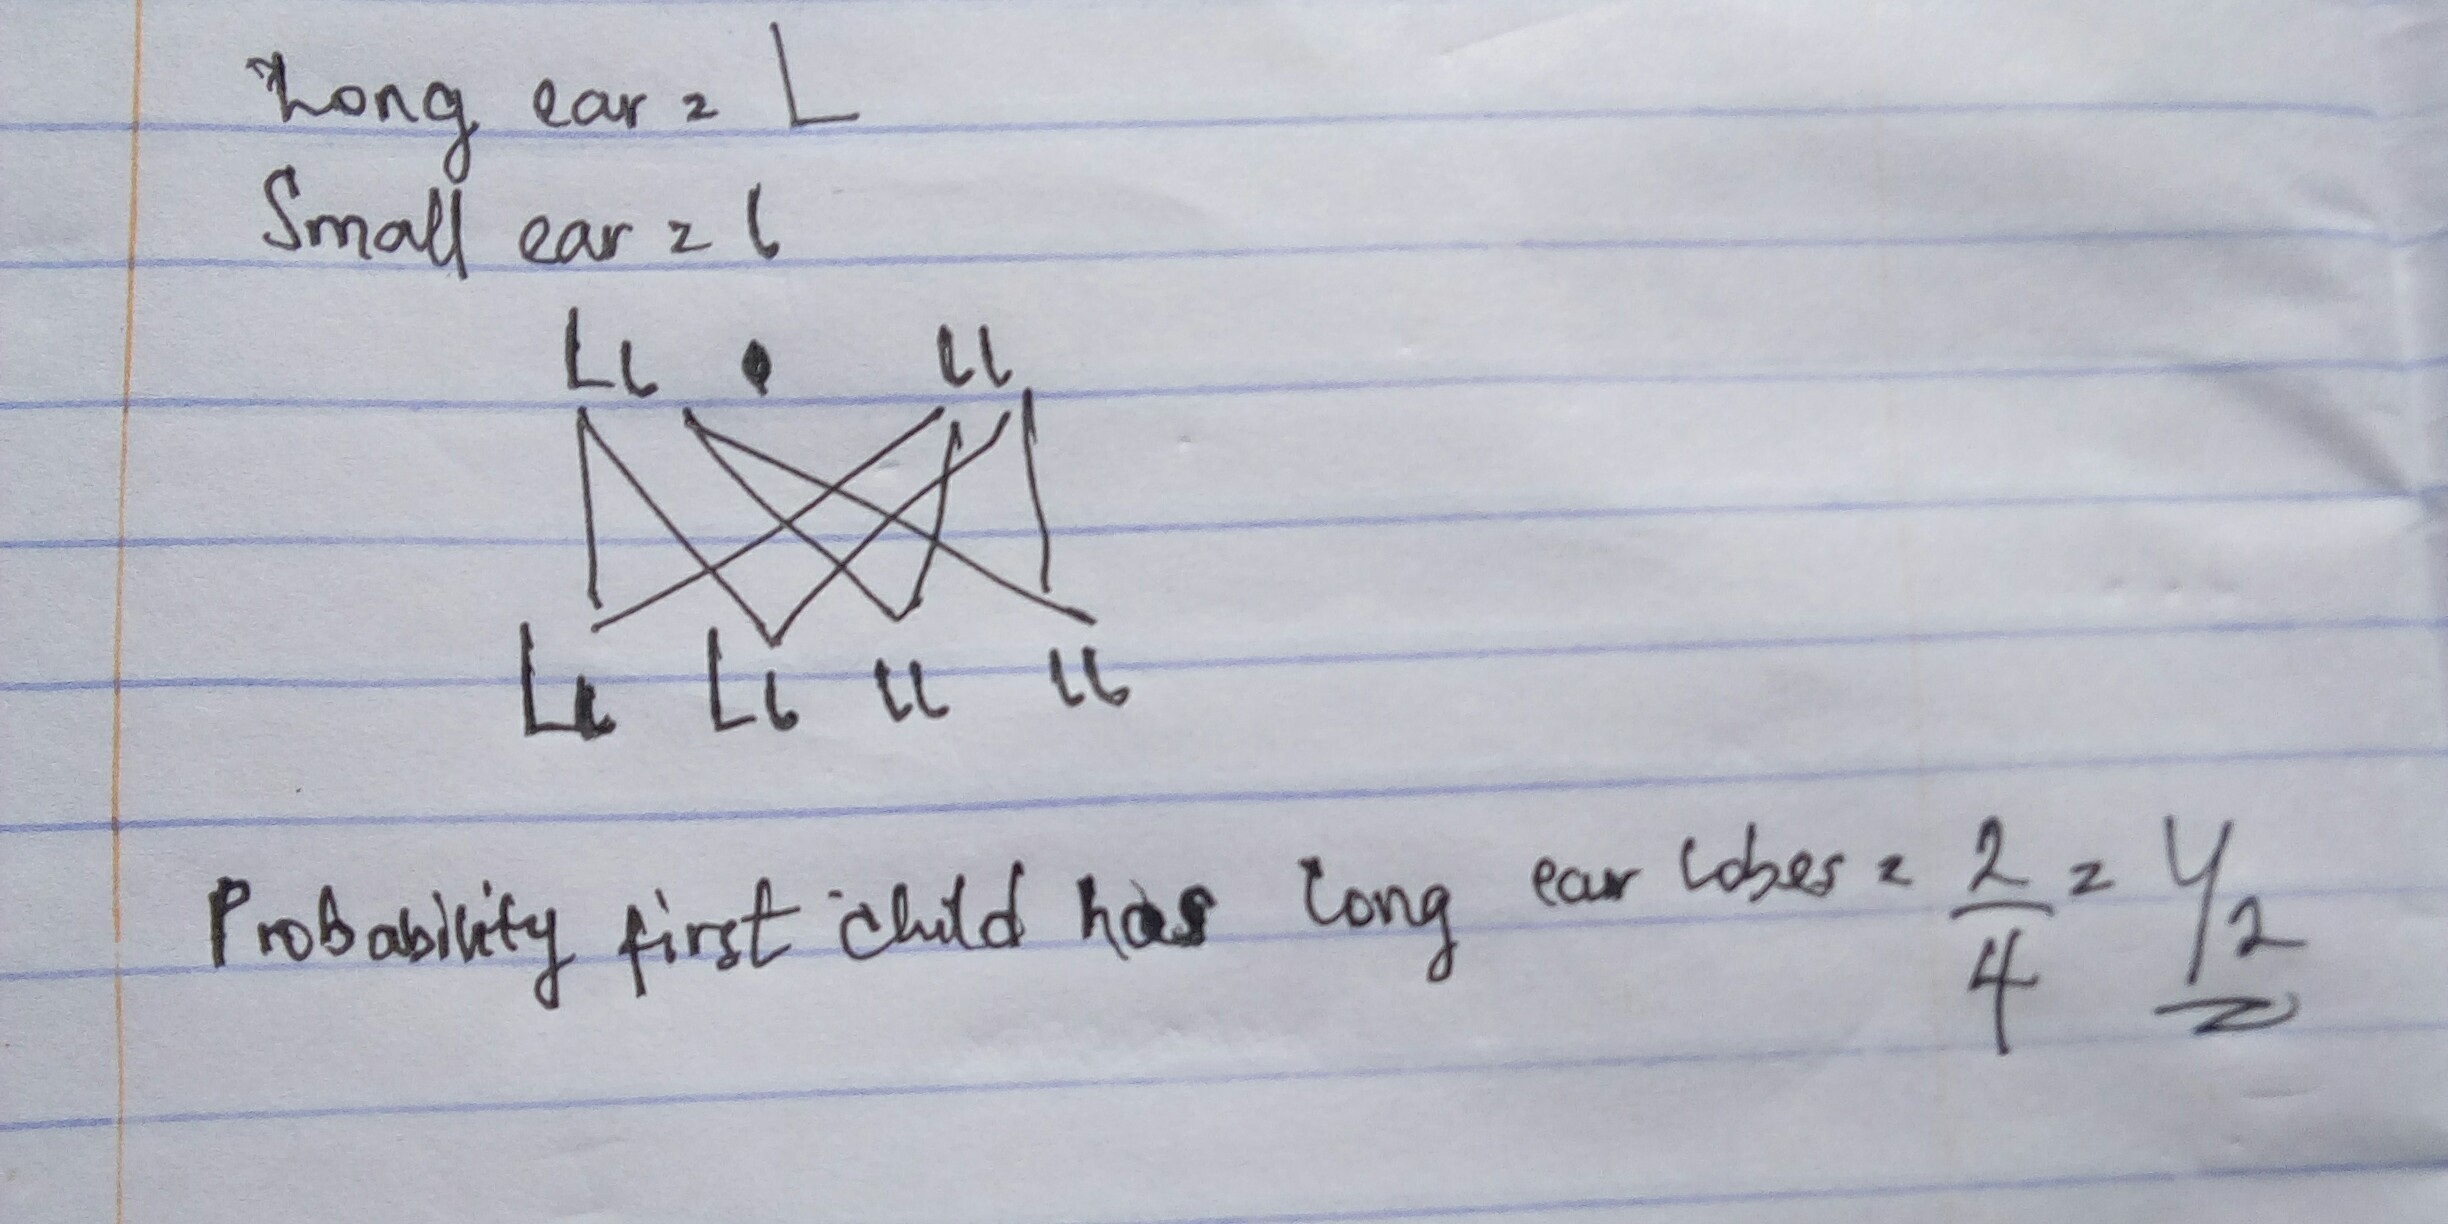 Long ear = L
Small ear = l
Ll ll
Ll Ll ll ll
Probability first child has long ear lobes = 2/4 = 1/2